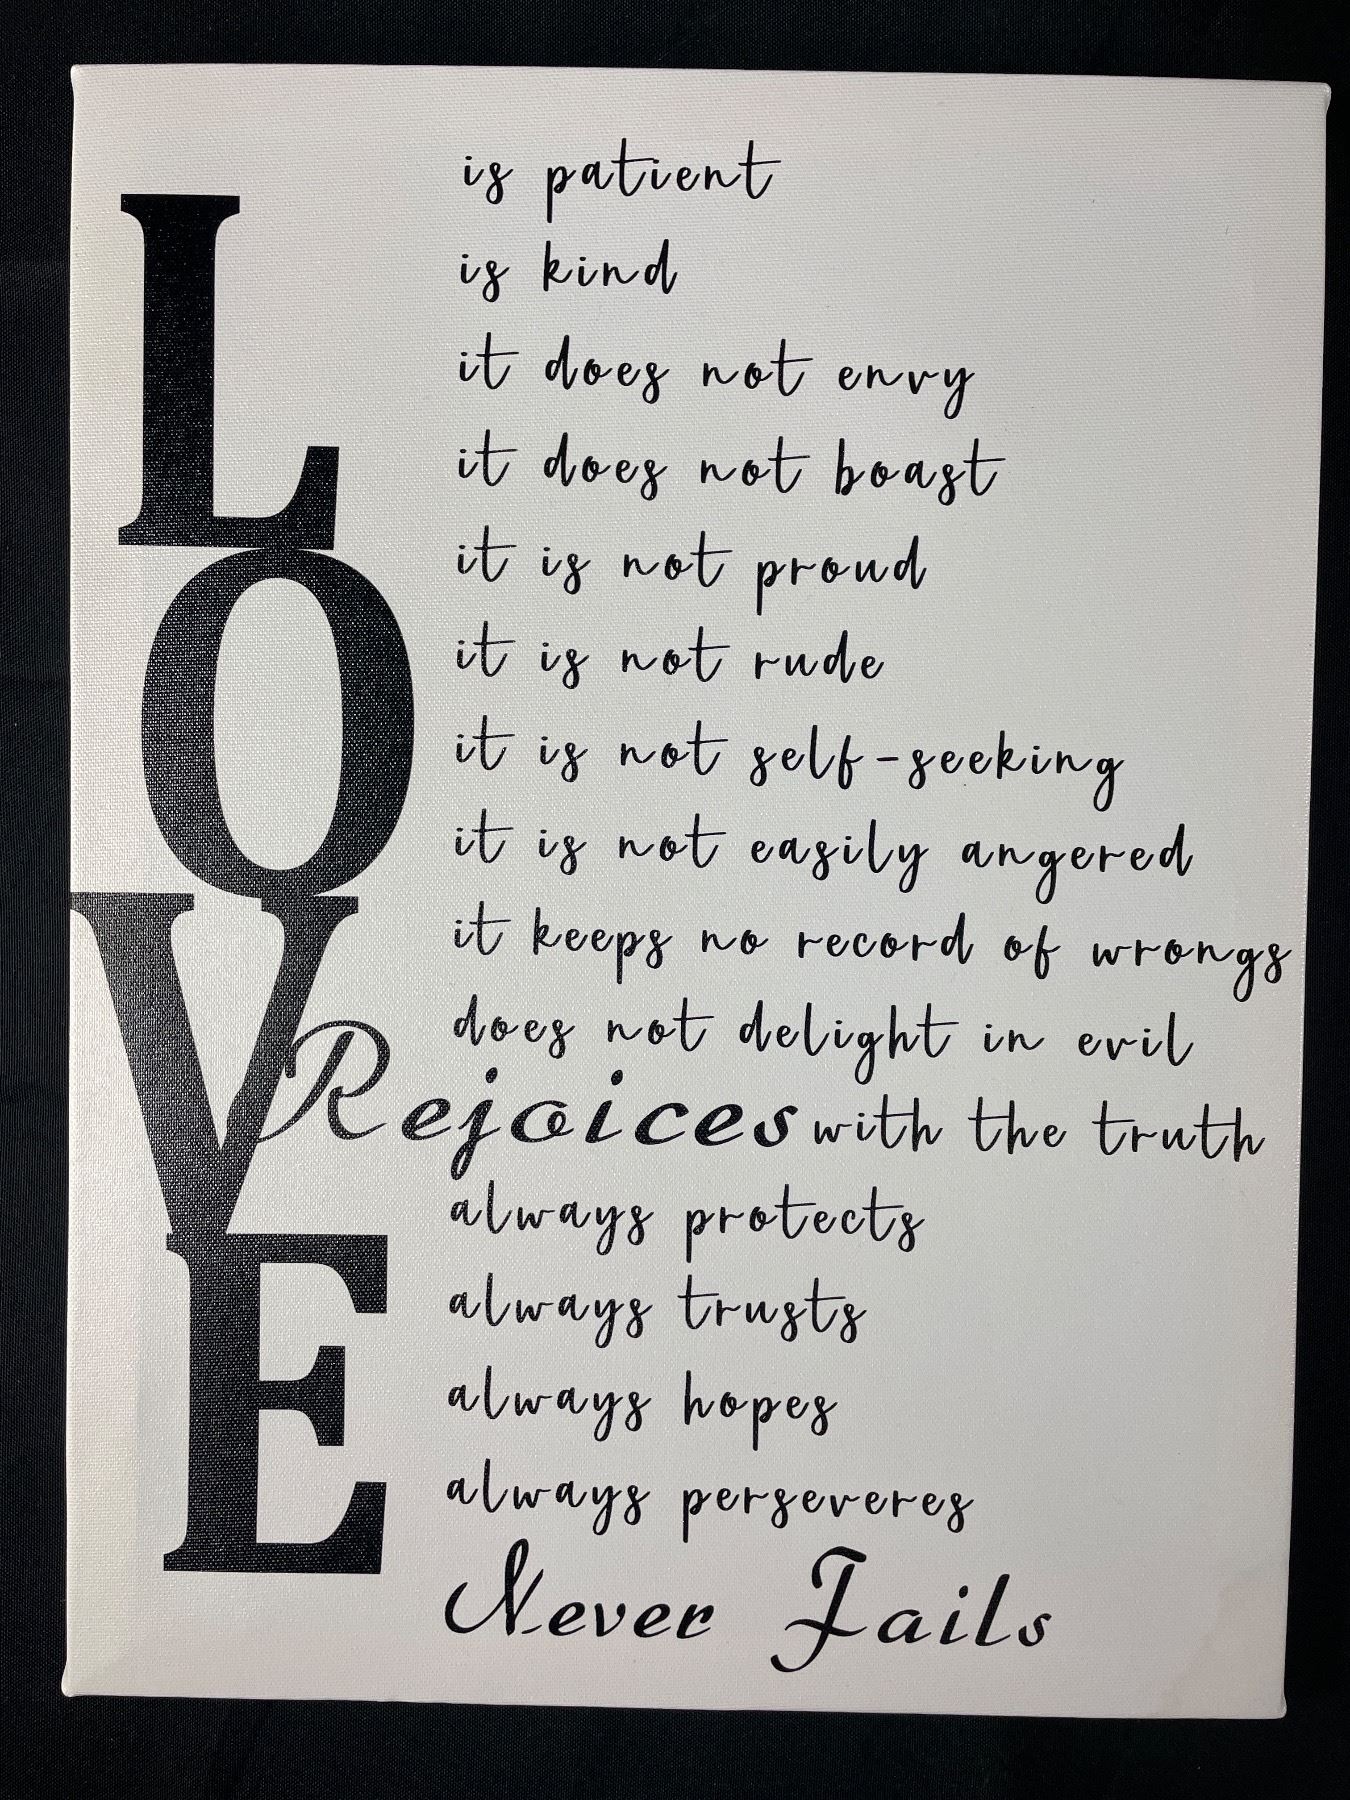 LOVE
is patient
is kind
it does not envy
it does not boast
it is not proud
it is not rude
it is not self-seeking
it is not easily angered
it keeps no record of wrongs
does not delight in evil
Rejoices with the truth
always protects
always trusts
always hopes
always perseveres
Never Fails